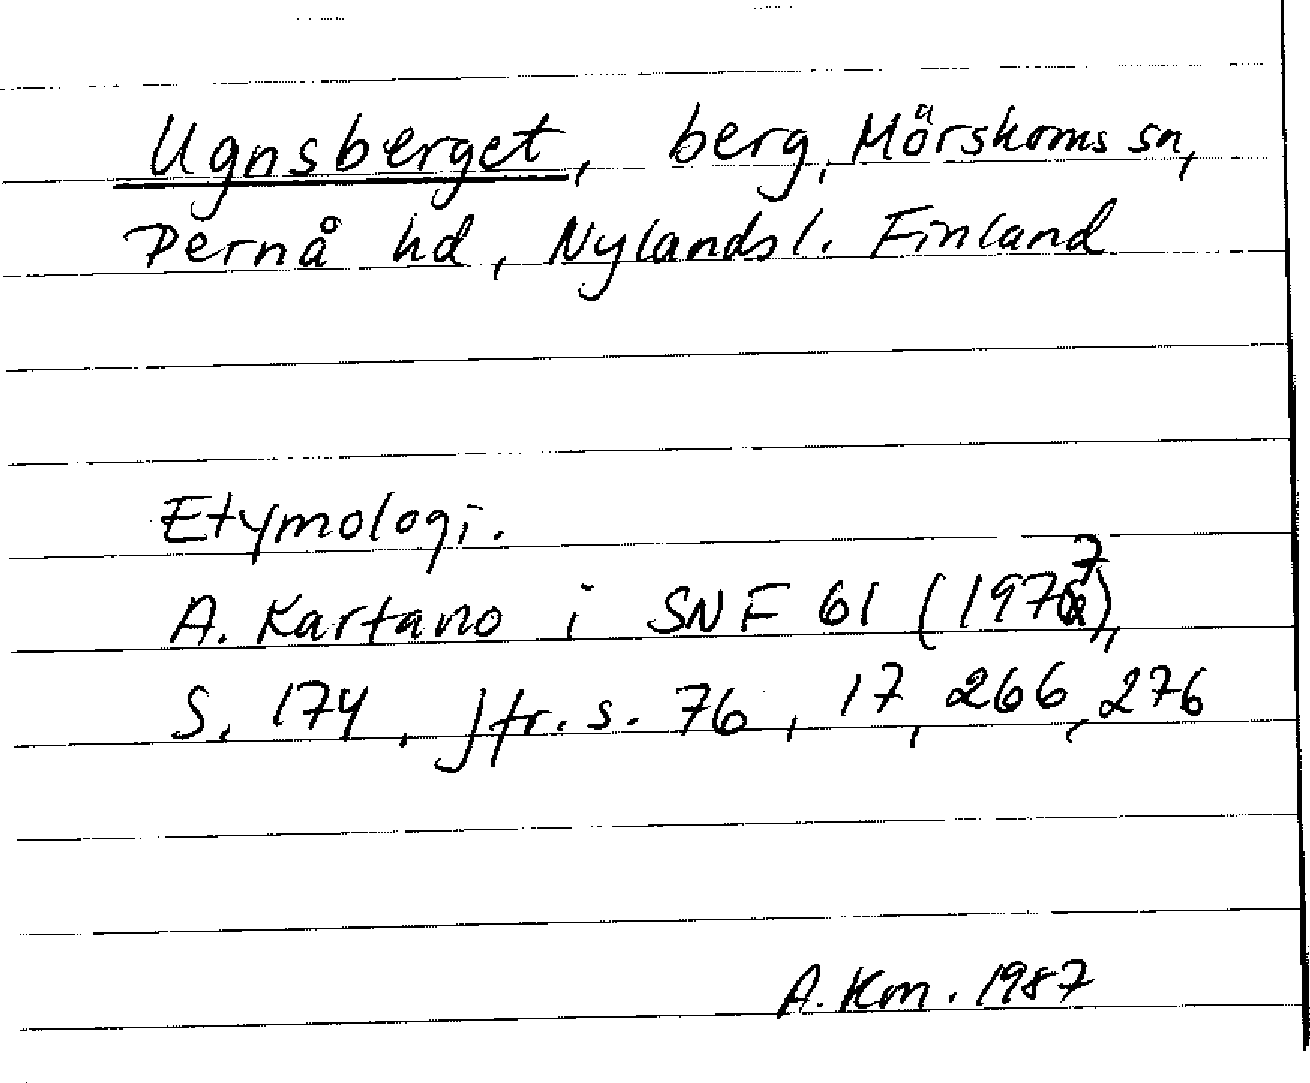 Ugnsberget, berg, Mörskoms sn,
Pernå hd, Nylands l. Finland
Etymologi.
A. Kartano i SNF 61 (1977),
S. 174, jfr. s. 76, 17, 266, 276
A. Km. 1987